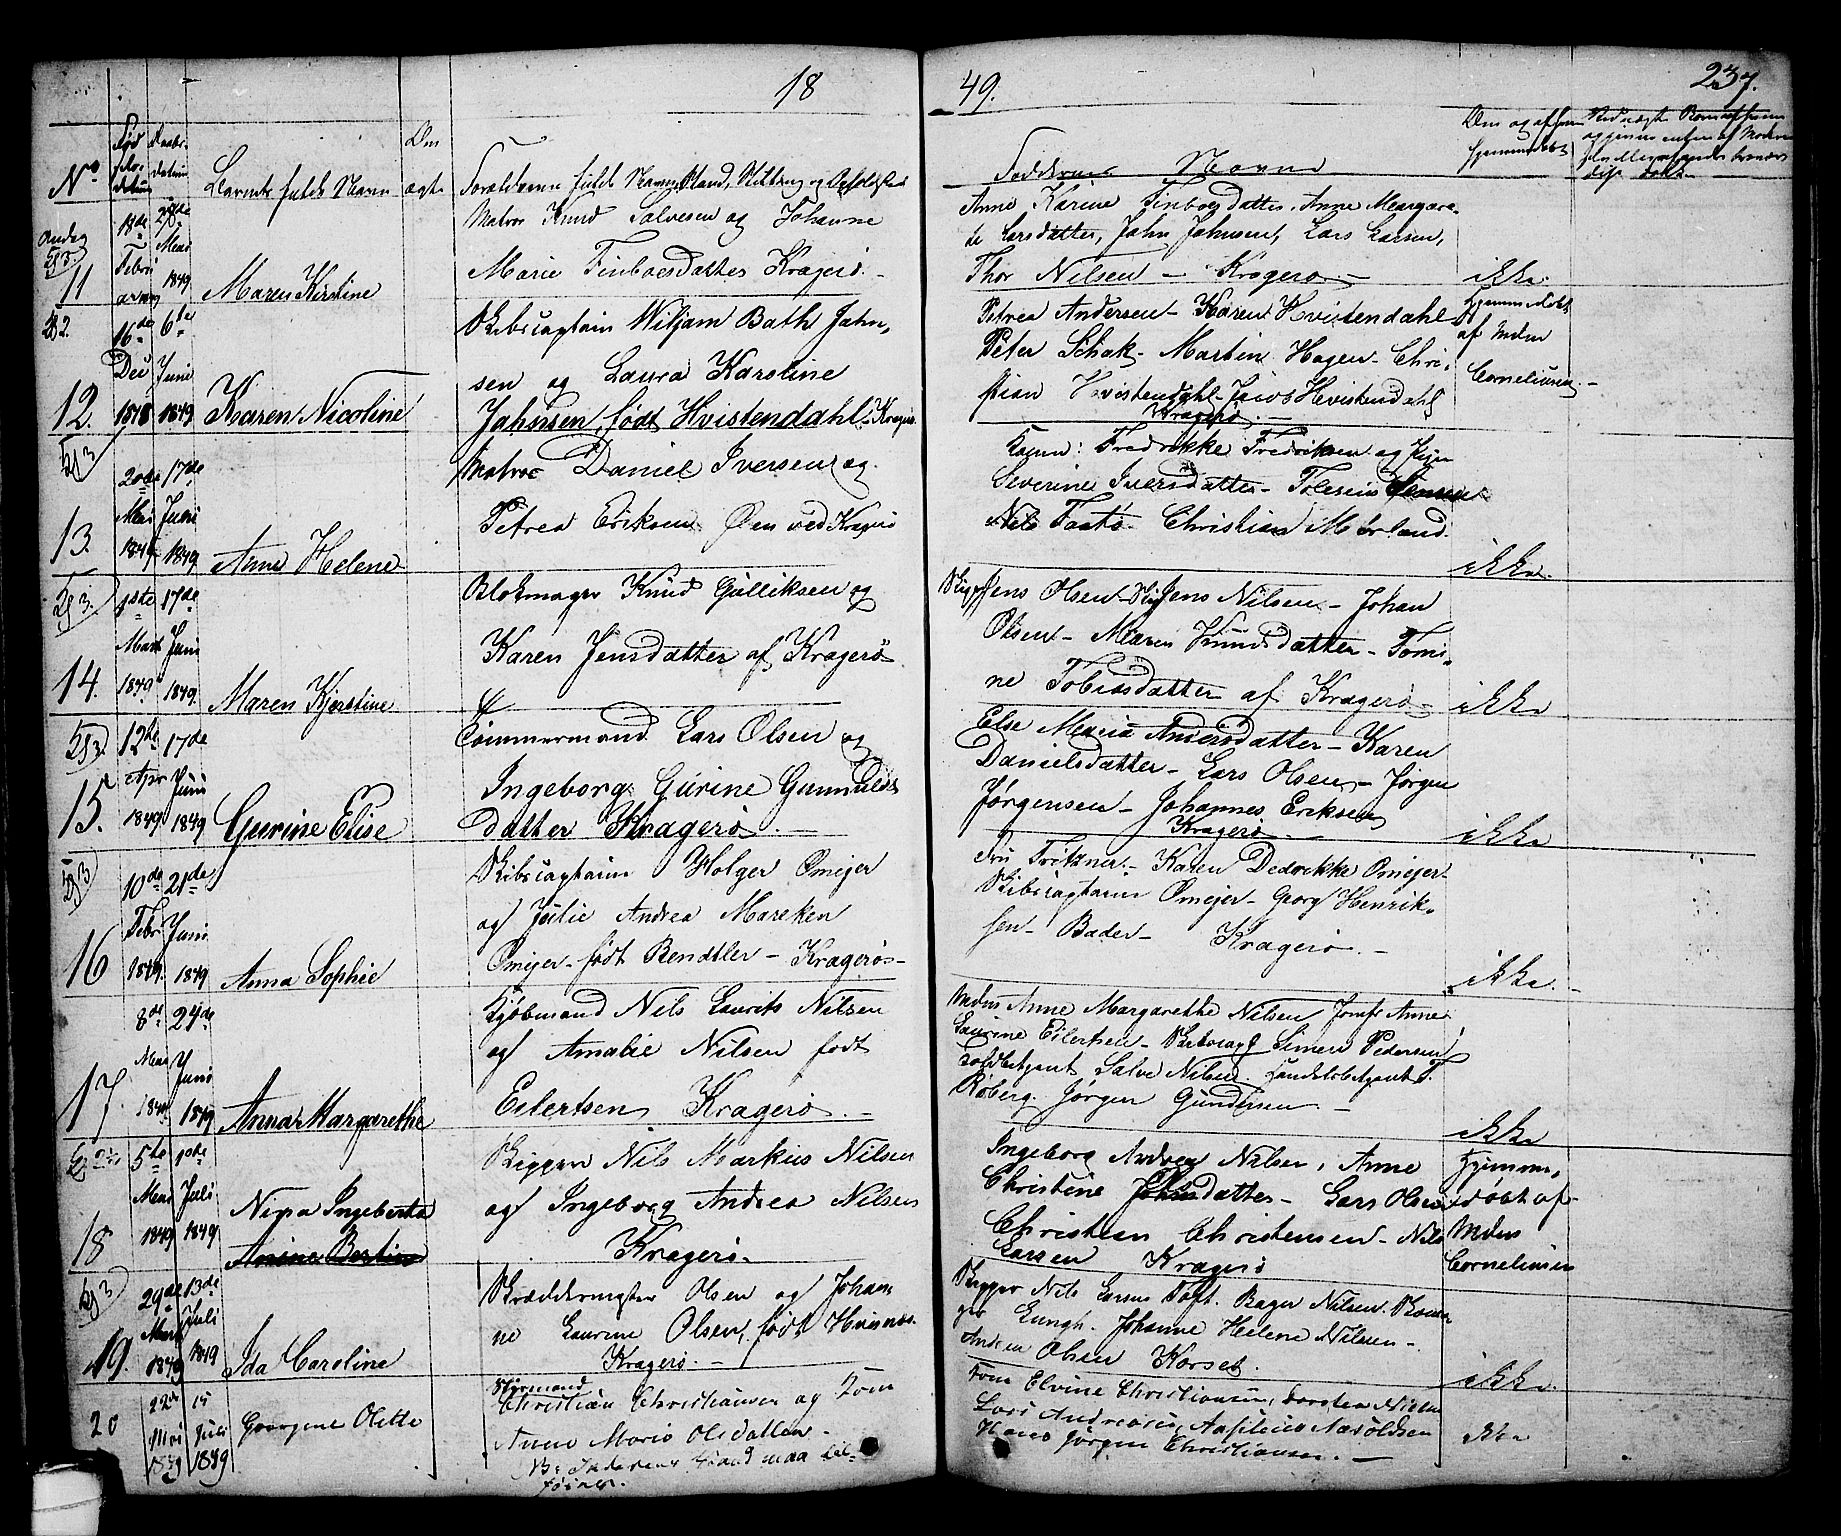 18
49.
237.
No
Barnets fulde Navn
Om
ægte
Forældrenes fulde Navn, Stand, Stilling og
Faddernes Navne
Om og af hvem
hjemmedøbt
11
18de
Febru
28de
Mai
1849
Maren Kirstine
Matros Knud Salvesen og Johanne
Marie Finboesdatter Kragerø.-
Anne Karine Finboesdatter, Anne Margare-
te Larsdatter, John Johnsen, Lars Larsen,
Thor Nilsen - Kragerø.-
ikke.
12.
16de
Dec
1848
6te
Juni
1849
Karen Nicoline
Skibscaptain Wiljam Bath Jahn,
sen og Laura Karoline
Jahnsen, født Hvistendahl - Kragerø.
Petrea Andersen - Karen Hvistendahl
Peter Schak - Martin Hagen - Chri,
stian Hvistendahl - Jacob Hvistendahl
Kragerø.-
Hjemmedøbt
af Mdm
Corneliusen.-
13.
20de
Mai
1849
17de
Juni
1849
Anne Helene
Matros Daniel Iversen og
Petrea Eriksen Øen ved Kragerø
Konen: Fredrikke Fredriksen og Pigen
Severine Iversdatter - Jensen
Nils Taatø - Christian Mørland.
ikke.
14.
1ste
Marts
1849
17de
Juni
1849.
Maren Kjerstine
Blokmager Knud Gulliksen og
Karen Jensdatter af Kragerø
Jens Olsen - Jens Nilsen - Johan
Olsen - Maren Knudsdatter - Tomi,
ne Tobiasdatter af Kragerø
ikke
15.
12te
Apr
1849.
17de
Juni
1849
Gurine Elise
Tømmermand Lars Olsen og
Ingeborg Gurine Gunnulds
datter Kragerø.-
Else Maria Andersdatter - Karen
Danielsdatter - Lars Olsen - Jørgen
Jørgensen - Johannes Eriksen
Kragerø
ikke
16
10de
Febr
1849.
21de
Juni
1849
Anna Sophie
Skibscaptain Holger Omejer
og Julie Andrea Mareken
Omejer - født Bendtler - Kragerø-
Fru Trikner - Karen Dedrikke Omejer
Skibscaptain Omejer - Georg Henrik,
sen - Bader - Kragerø.-
ikke.-
17.
8de
Mai
1849
24de
Juni
1849
Anna Margarethe
Kjøbmand Nils Laurits Nilsen
og Amalie Nilsen født
Eilertsen Kragerø.-
Mdm Anne Margarethe Nilsen Jomfr Anne
Laurine Eilertsen - Skibscapt Simen Pedersen
Toldbetjent Salve Nilsen. Landtolbetjent T.
Roberg. Jørgen Gundersen.-
ikke
18
5te
Mai
1849
1ste
Juli
1849
Nina Ingeberta
Anine Bertine
Skipper Nils Markus Nilsen
og Ingeborg Andrea Nilsen
Kragerø.
Ingeborg Andrea Nilsen, Anne
Christine Johnsdatter - Lars Olsen
Christian Christensen - Nils
Larsen Kragerø
Hjemme,
døbt af
Mdm
Corneliusen
19.
29de
Mars
1849
13de
Juli
1849
Ida Caroline
Skræddermester Olsen og Johan
ne Laurine Olsen, født
Kragerø.-
Skipper Nils Larsen Toft. Bager Nilsen.
Lungh. Johanne Helene Nilsen -
Andrea Olsen Korset.
ikke.
20
22de
Mai
1849
15
Juli
1849
Georgine Olette
Styrmand
Christian Christiansen og Kone
Anne Marie Olsdatter.-
Elvine Christiansen, Torsten Nilsen
Lars Andreasen,
Hans Jørgen Christiansen.-
ikke